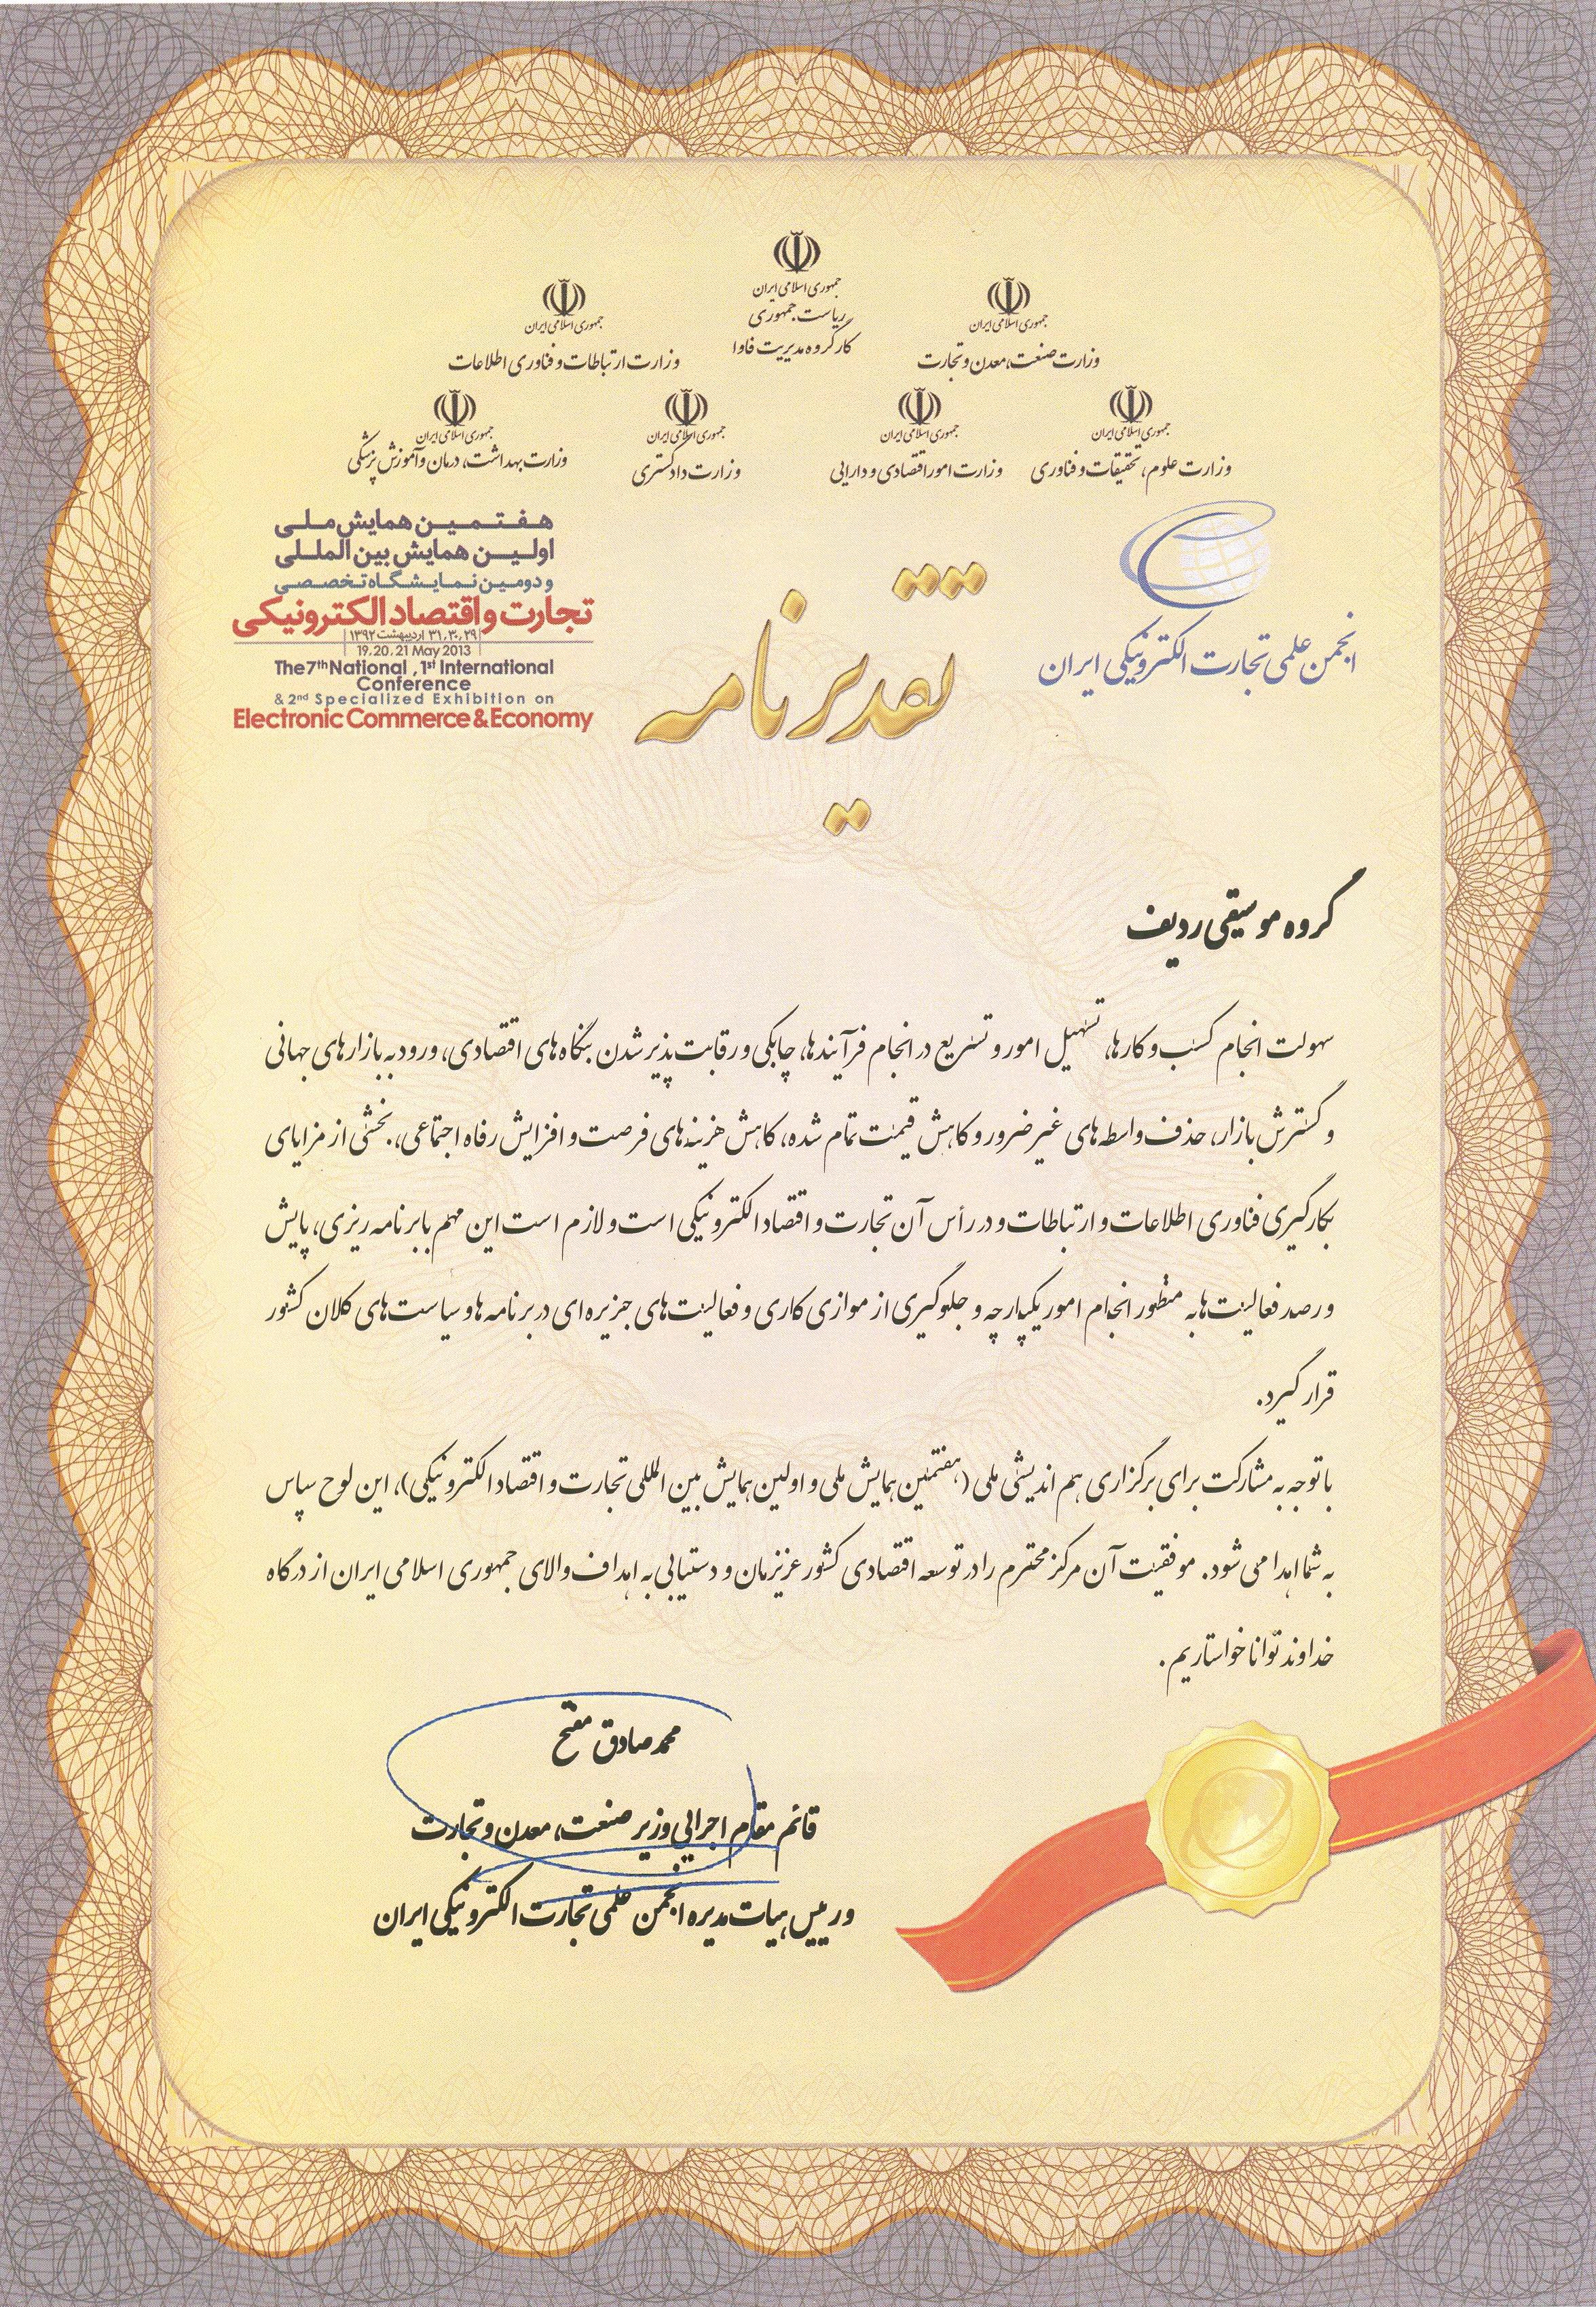 جمهوری اسلامی ایران
ریاست جمهوری
کارگروه مدیریت فاوا
جمهوری اسلامی ایران
وزارت صنعت، معدن و تجارت
جمهوری اسلامی ایران
وزارت ارتباطات و فناوری اطلاعات
جمهوری اسلامی ایران
وزارت علوم، تحقیقات و فناوری
جمهوری اسلامی ایران
وزارت امور اقتصادی و دارایی
جمهوری اسلامی ایران
وزارت دادگستری
جمهوری اسلامی ایران
وزارت بهداشت، درمان و آموزش پزشکی
انجمن علمی تجارت الکترونیکی ایران
تقدیرنامه
هفتمین همایش ملی
اولین همایش بین المللی
و دومین نمایشگاه تخصصی
تجارت و اقتصاد الکترونیکی
۲۹، ۳۰، ۳۱ اردیبهشت ۱۳۹۲
19, 20, 21 May 2013
The 7th National , 1st International
Conference
& 2nd Specialized Exhibition on
Electronic Commerce & Economy
گروه موسیقی ردیف
سهولت انجام کسب و کارها، تسهیل امور و تسریع در انجام فرآیندها، چابکی و رقابت پذیر شدن بنگاه های اقتصادی، ورود به بازارهای جهانی
و گسترش بازار، حذف واسطه های غیر ضرور و کاهش قیمت تمام شده، کاهش هزینه های فرصت و افزایش رفاه اجتماعی، بخشی از مزایای
بکارگیری فناوری اطلاعات و ارتباطات و در رأس آن تجارت و اقتصاد الکترونیکی است و لازم است این مهم با برنامه ریزی، پایش
و رصد فعالیت ها به منظور انجام امور یکپارچه و جلوگیری از موازی کاری و فعالیت های جزیره ای در برنامه ها و سیاست های کلان کشور
قرار گیرد.
با توجه به مشارکت برای برگزاری هم اندیشی ملی (هفتمین همایش ملی و اولین همایش بین المللی تجارت و اقتصاد الکترونیکی)، این لوح سپاس
به شما اهدا می شود. موفقیت آن مرکز محترم را در توسعه اقتصادی کشور عزیزمان و دستیابی به اهداف والای جمهوری اسلامی ایران از درگاه
خداوند توانا خواستاریم.
محمد صادق مفتح
قائم مقام اجرایی وزیر صنعت، معدن و تجارت
و رییس هیات مدیره انجمن علمی تجارت الکترونیکی ایران